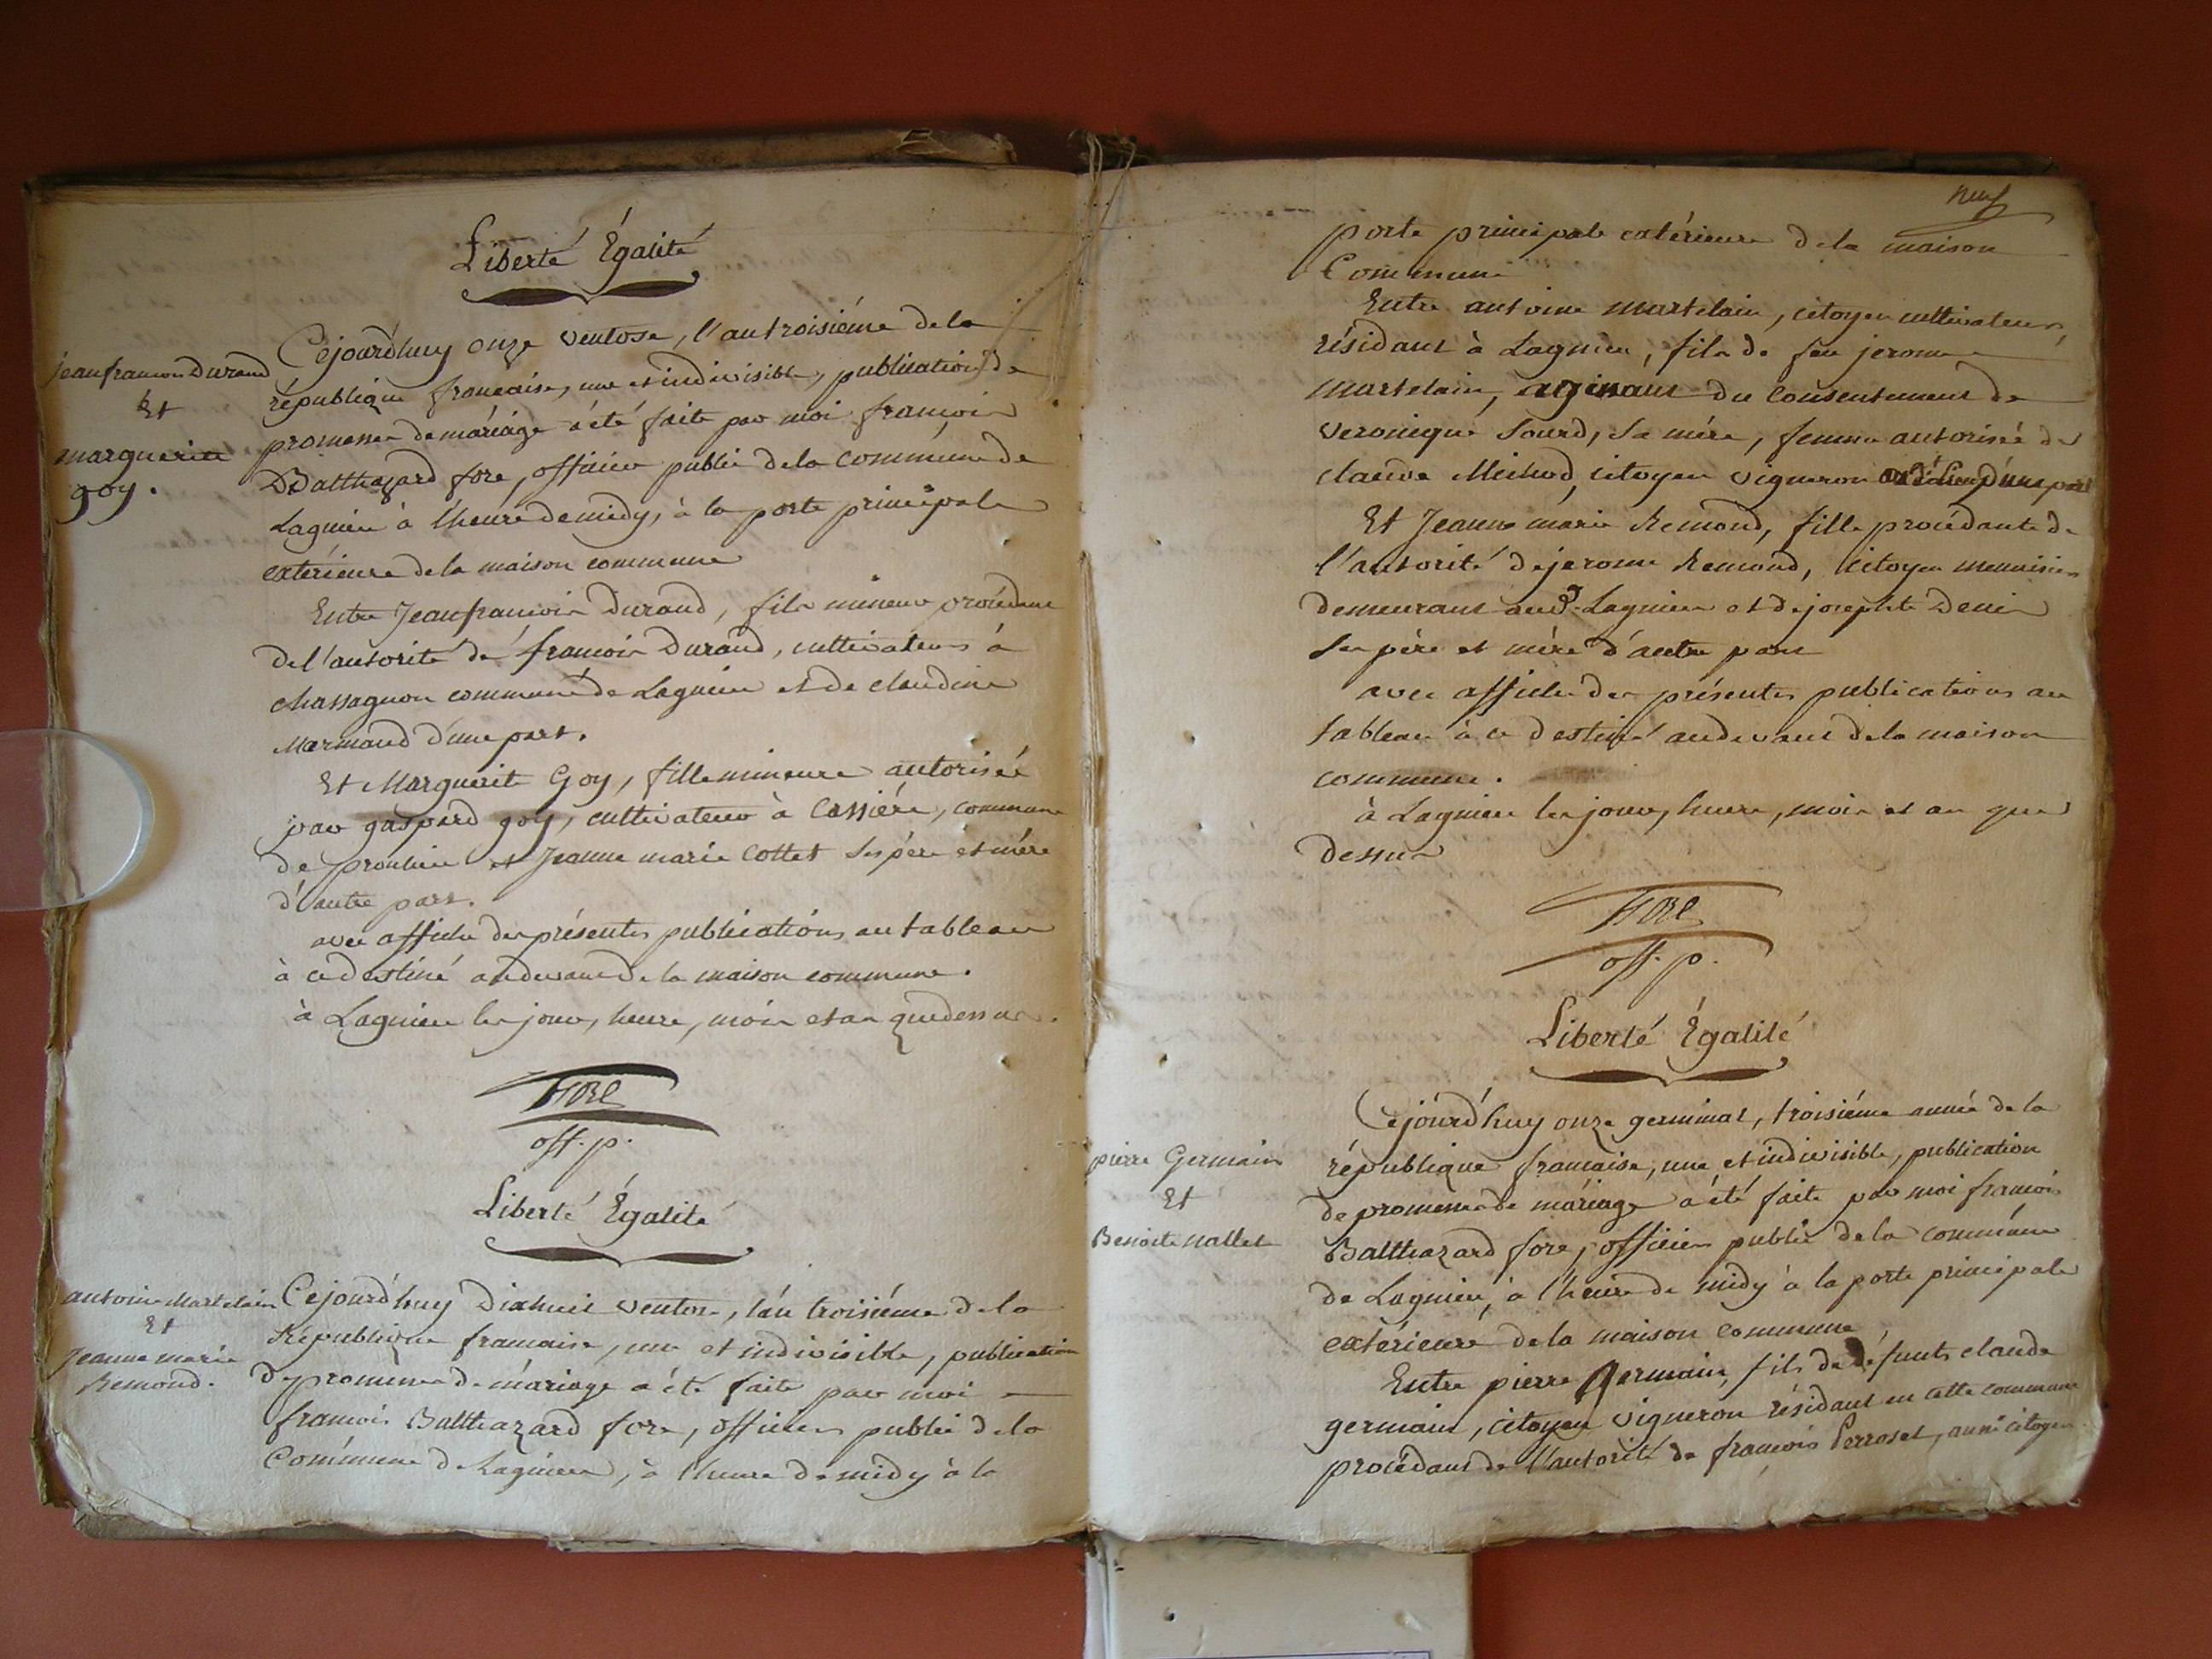 Liberté Égalité
jean francois Durand
Et
marguerite
goy.
Cejourd'huy onze ventose, l'an troisiéme dela
république francaise, une et indivisible, publication de
promesses de mariage a été faite par moi francois
Balthazard fore, officier public dela commune de
Lagnieu à l'heure de midy, à la porte principale
extérieure dela maison commune
Entre Jean francois Durand, fils mineur procédant
de l'autorité de francois Durand, cultivateur à
chassagnon commune de Lagnieu et de claudine
Marmand d'une part.
Et Marguerite Goy, fille mineure autorisée
par gaspard goy, cultivateur à Cassiére, commune
de proulieu et Jeanne marie Cottet ses pére et mére
d'autre part.
avec affiche des présentes publications au tableau
à ce destiné audevant de la maison commune.
à Lagnieu les jour, heure, mois et an que dessus.
Fore
off. p.
Liberté Égalité
antoine Martelain
Et
Jeanne marie
Remond.
Cejourd'huy dixhuit ventose, l'an troisiéme dela
République francaise, une et indivisible, publication
de promesses de mariage a été faite par moi
francois Balthazard fore, officier public dela
Commune de Lagnieu, à l'heure de midy à la
neuf
porte principale extérieure dela maison
Commune
Entre antoine Martelain, citoyen cultivateur
résidant à Lagnieu, fils de feu jerome
Martelain, agissant du consentement de
veronique Sourd, sa mére, femme autorisée de
claude Michod, citoyen vigneron d'une part
Et Jeanne marie Remond, fille procédante de
l'autorité de jerome Remond, citoyen menuisier
demeurant aud. Lagnieu et de josephte Denis
ses pére et mére d'autre part
avec affiche des présentes publications au
tableau à ce destiné audevant dela maison
commune.
à Lagnieu les jour, heure, mois et an que
dessus
Fore
off. p.
Liberté Égalité
pierre Germain
Et
Benoite nallet
Cejourd'huy onze germinal, troisiéme année de la
république francaise, une et indivisible, publication
de promesses de mariage a été faite par moi francois
Balthazard fore, officier public dela commune
de Lagnieu, à l'heure de midy à la porte principale
extérieure dela maison commune
Entre pierre Germain, fils de défunts claude
germain, citoyen vigneron résidant en cette commune
procédant de l'autorité de francois Perroset, aussi citoyen